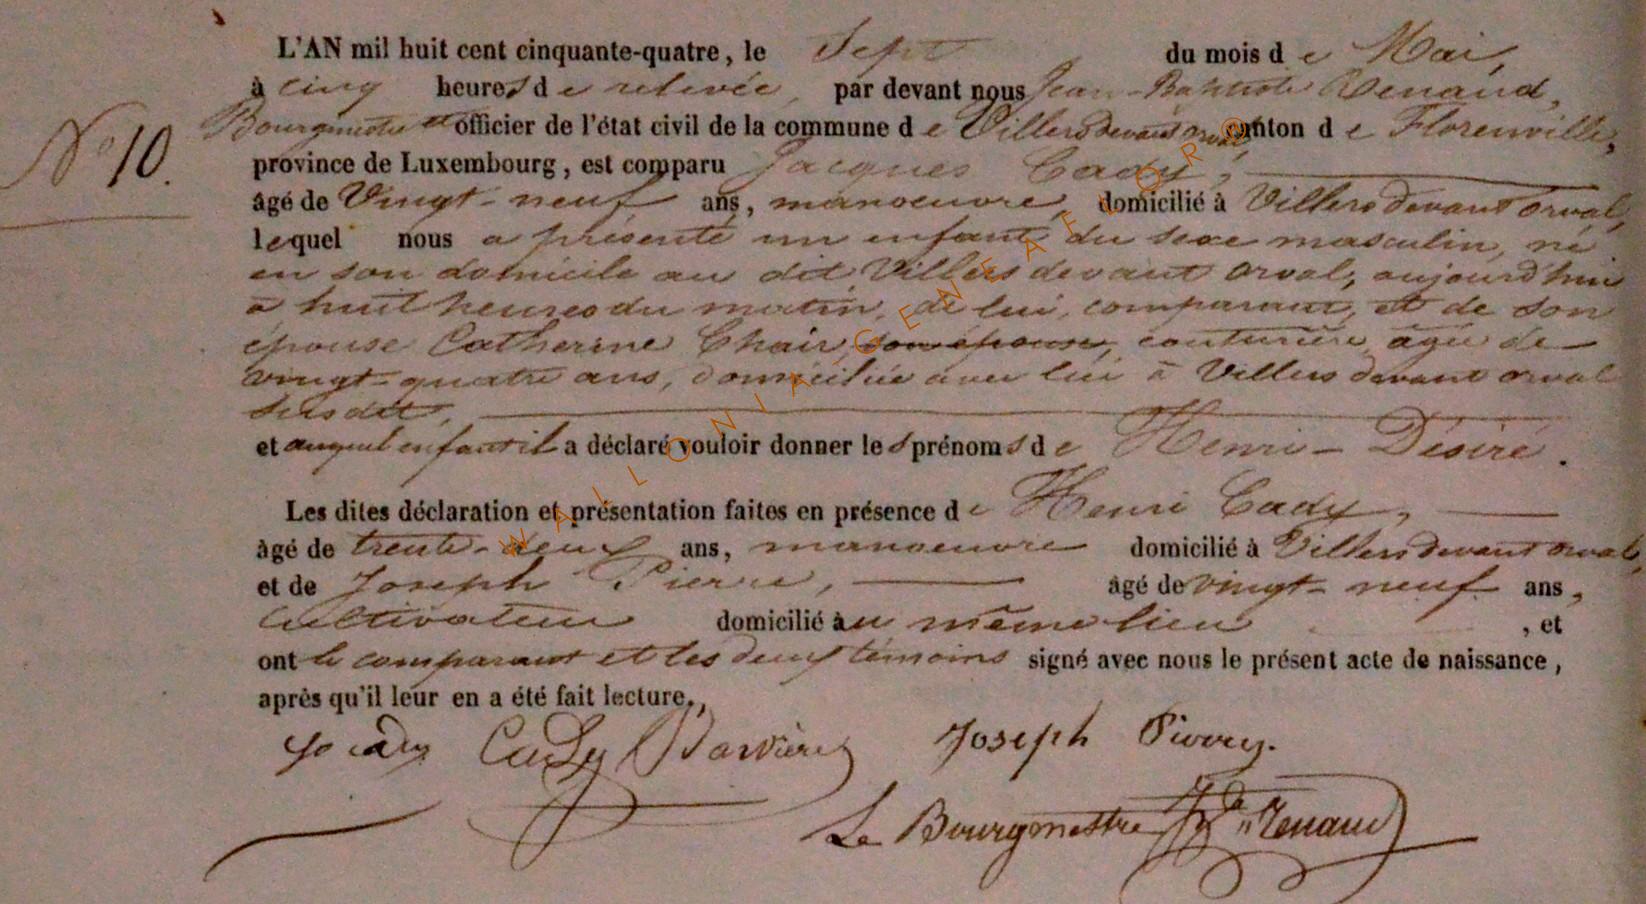 L'AN mil huit cent cinquante-quatre, le Sept du mois de Mai,
à cinq heures de relevée, par devant nous Jean-Baptiste Renaud,
Bourgmestre et officier de l'état civil de la commune de Villers devant orval canton de Florenville,
N° 10.
province de Luxembourg, est comparu Jacques Cady,
âgé de Vingt-neuf ans, manoeuvre, domicilié à Villers devant orval,
lequel nous a présenté un enfant du sexe masculin, né
en son domicile au dit Villers devant orval, aujourd'hui
à huit heures du matin, de lui, comparant, et de son
épouse Catherine Chair, son épouse, couturière âgée de
vingt-quatre ans, domiciliée avec lui à Villers devant orval
susdit,
et auquel enfant il a déclaré vouloir donner les prénoms de Henri-Désiré.
Les dites déclaration et présentation faites en présence de Henri Cady,
âgé de trente-deux ans, manoeuvre domicilié à Villers devant orval,
et de Joseph Pierre, âgé de vingt-neuf ans,
Cultivateur domicilié au même lieu, et
ont le comparant et les deux témoins signé avec nous le présent acte de naissance,
après qu'il leur en a été fait lecture.,
Cady Joseph
Le Bourgmestre Renaud
WALLONIAGENEAFLOR®